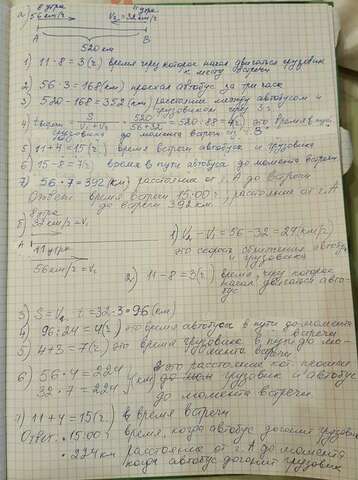 а) 8 утра 11 утра
56 км/ч V₂ = 32 км/ч
А В
520 км
1) 11-8=3(ч) время через которое начал двигаться грузовик к месту встречи
2) 56·3=168(км) проехал автобус за три часа
3) 520-168=352(км) расстояние между автобусом и грузовиком через 3 ч.
4) t = S / V₁+V₂ = 520 / 56+32 = 520:88=4(ч) это время в пути
грузовика до момента встречи
5) 11+4=15(ч) время встречи автобуса и грузовика
6) 15-8=7(ч) время в пути автобуса до момента встречи
7) 56·7=392(км) расстояние от г. А до встречи
Ответ: время встречи 15.00 ч, расстояние от г. А
до встречи 392 км.
8 утра
б) 32 км/ч = V₁
А
11 утра
56 км/ч = V₂
1) V₂-V₁=56-32=24(км/ч)
это скорость сближения автобуса и грузовика
2) 11-8=3(ч) время, через которое
начал двигаться автобус
3) S=V₁·t=32·3=96(км)
4) 96:24=4(ч) это время автобуса в пути до момента
встречи
5) 4+3=7(ч) это время грузовика в пути до момента
встречи
6) 56·4=224
32·7=224 (км) это расстояние кот. проехали
грузовик и автобус
до момента встречи
7) 11+4=15(ч) время встречи
Ответ: 15.00 время, когда автобус догонит грузовик
224 км расстояние от г. А до момента
когда автобус догонит грузовик